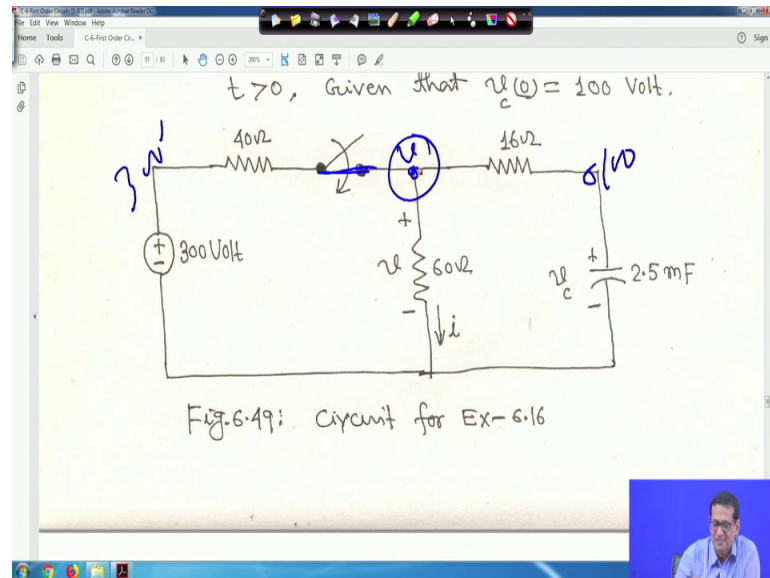 C-6-First Order Circuits [1-83].pdf - Adobe Acrobat Reader DC
File Edit View Window Help
Home Tools C-6-First Order Cir... × Sign
57 / 83 200%
t>0, Given that v_c(0) = 100 Volt.
40Ω v 16Ω
+ 300 Volt -
+ v - 60Ω
i
+ v_c - 2.5 mF
Fig.6.49: Circuit for Ex-6.16